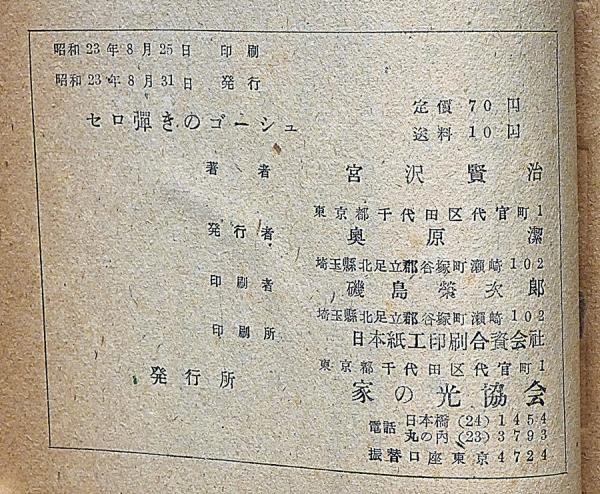 昭和23年8月25日 印刷
昭和23年8月31日 発行
定價 70円
セロ弾きのゴーシュ
送料 10円
著者 宮沢賢治
東京都千代田区代官町1
発行者 奥原潔
埼玉縣北足立郡谷塚町瀬崎102
印刷者 磯島榮次郎
埼玉縣北足立郡谷塚町瀬崎102
印刷所 日本紙工印刷合資会社
東京都千代田区代官町1
発行所 家の光協会
電話 日本橋(24)1454
丸の内(23)3793
振替口座東京4724